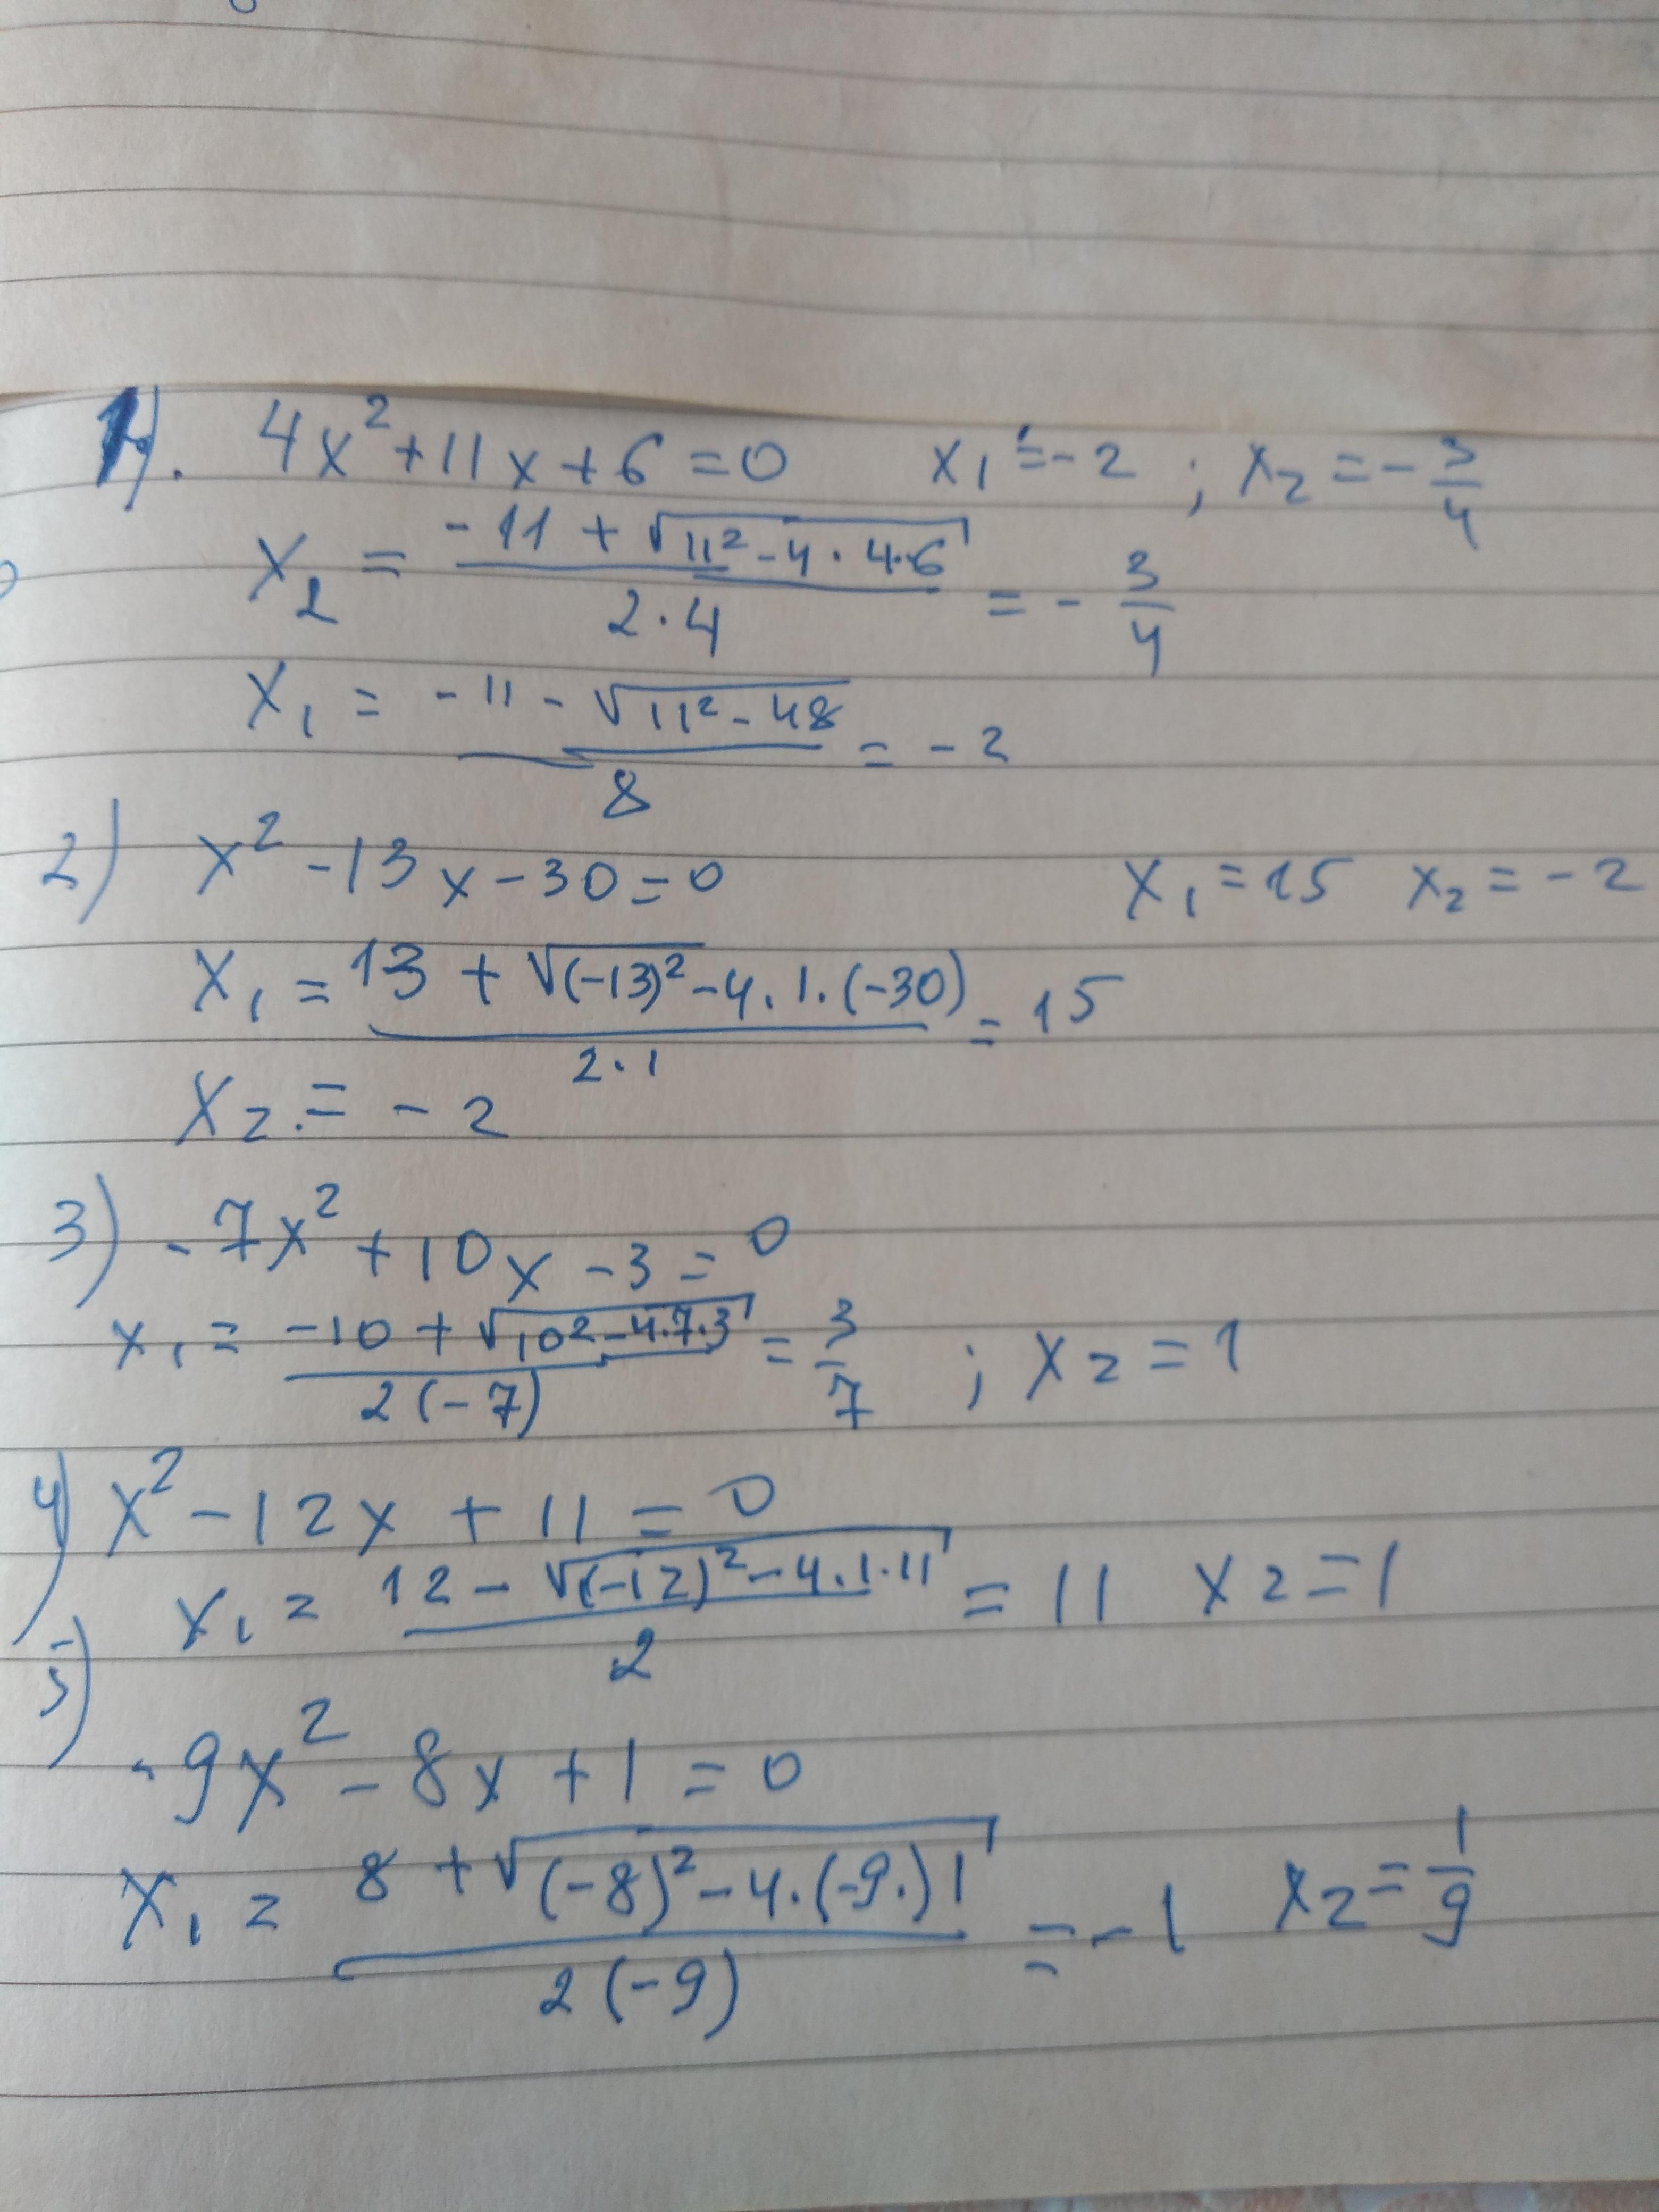 1). 4x² + 11x + 6 = 0 x₁ = -2 ; x₂ = - 3/4
x₂ = (-11 + √(11² - 4 · 4 · 6)) / (2 · 4) = - 3/4
x₁ = (-11 - √(11² - 48)) / 8 = -2
2) x² - 13x - 30 = 0 x₁ = 15 x₂ = -2
x₁ = (13 + √((-13)² - 4 · 1 · (-30))) / (2 · 1) = 15
x₂ = -2
3) -7x² + 10x - 3 = 0
x₁ = (-10 + √(10² - 4 · 7 · 3)) / (2(-7)) = 3/7 ; x₂ = 1
4) x² - 12x + 11 = 0
x₁ = (12 - √((-12)² - 4 · 1 · 11)) / 2 = 11 x₂ = 1
5)
-9x² - 8x + 1 = 0
x₁ = (8 + √((-8)² - 4 · (-9 ·) 1)) / (2(-9)) = -1 x₂ = 1/9